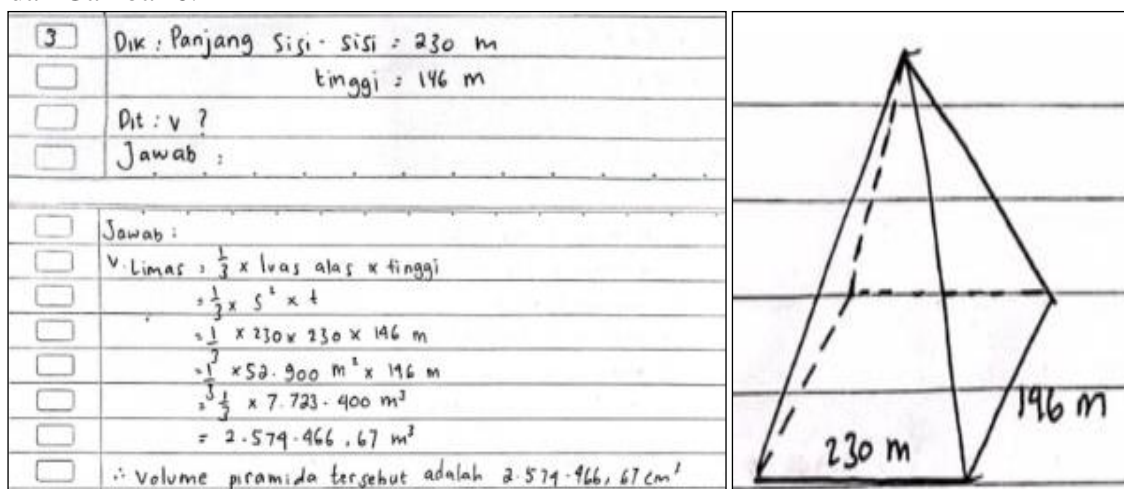 3 Dik : Panjang Sisi - sisi = 230 m
tinggi = 146 m
Dit : v ?
Jawab :
Jawab :
V. Limas = 1/3 x luas alas x tinggi
= 1/3 x s² x t
= 1/3 x 230 x 230 x 146 m
= 1/3 x 52.900 m² x 146 m
= 1/3 x 7.723.400 m³
= 2.574.466,67 m³
∴ Volume piramida tersebut adalah 2.574.466,67 cm³
146 m
230 m